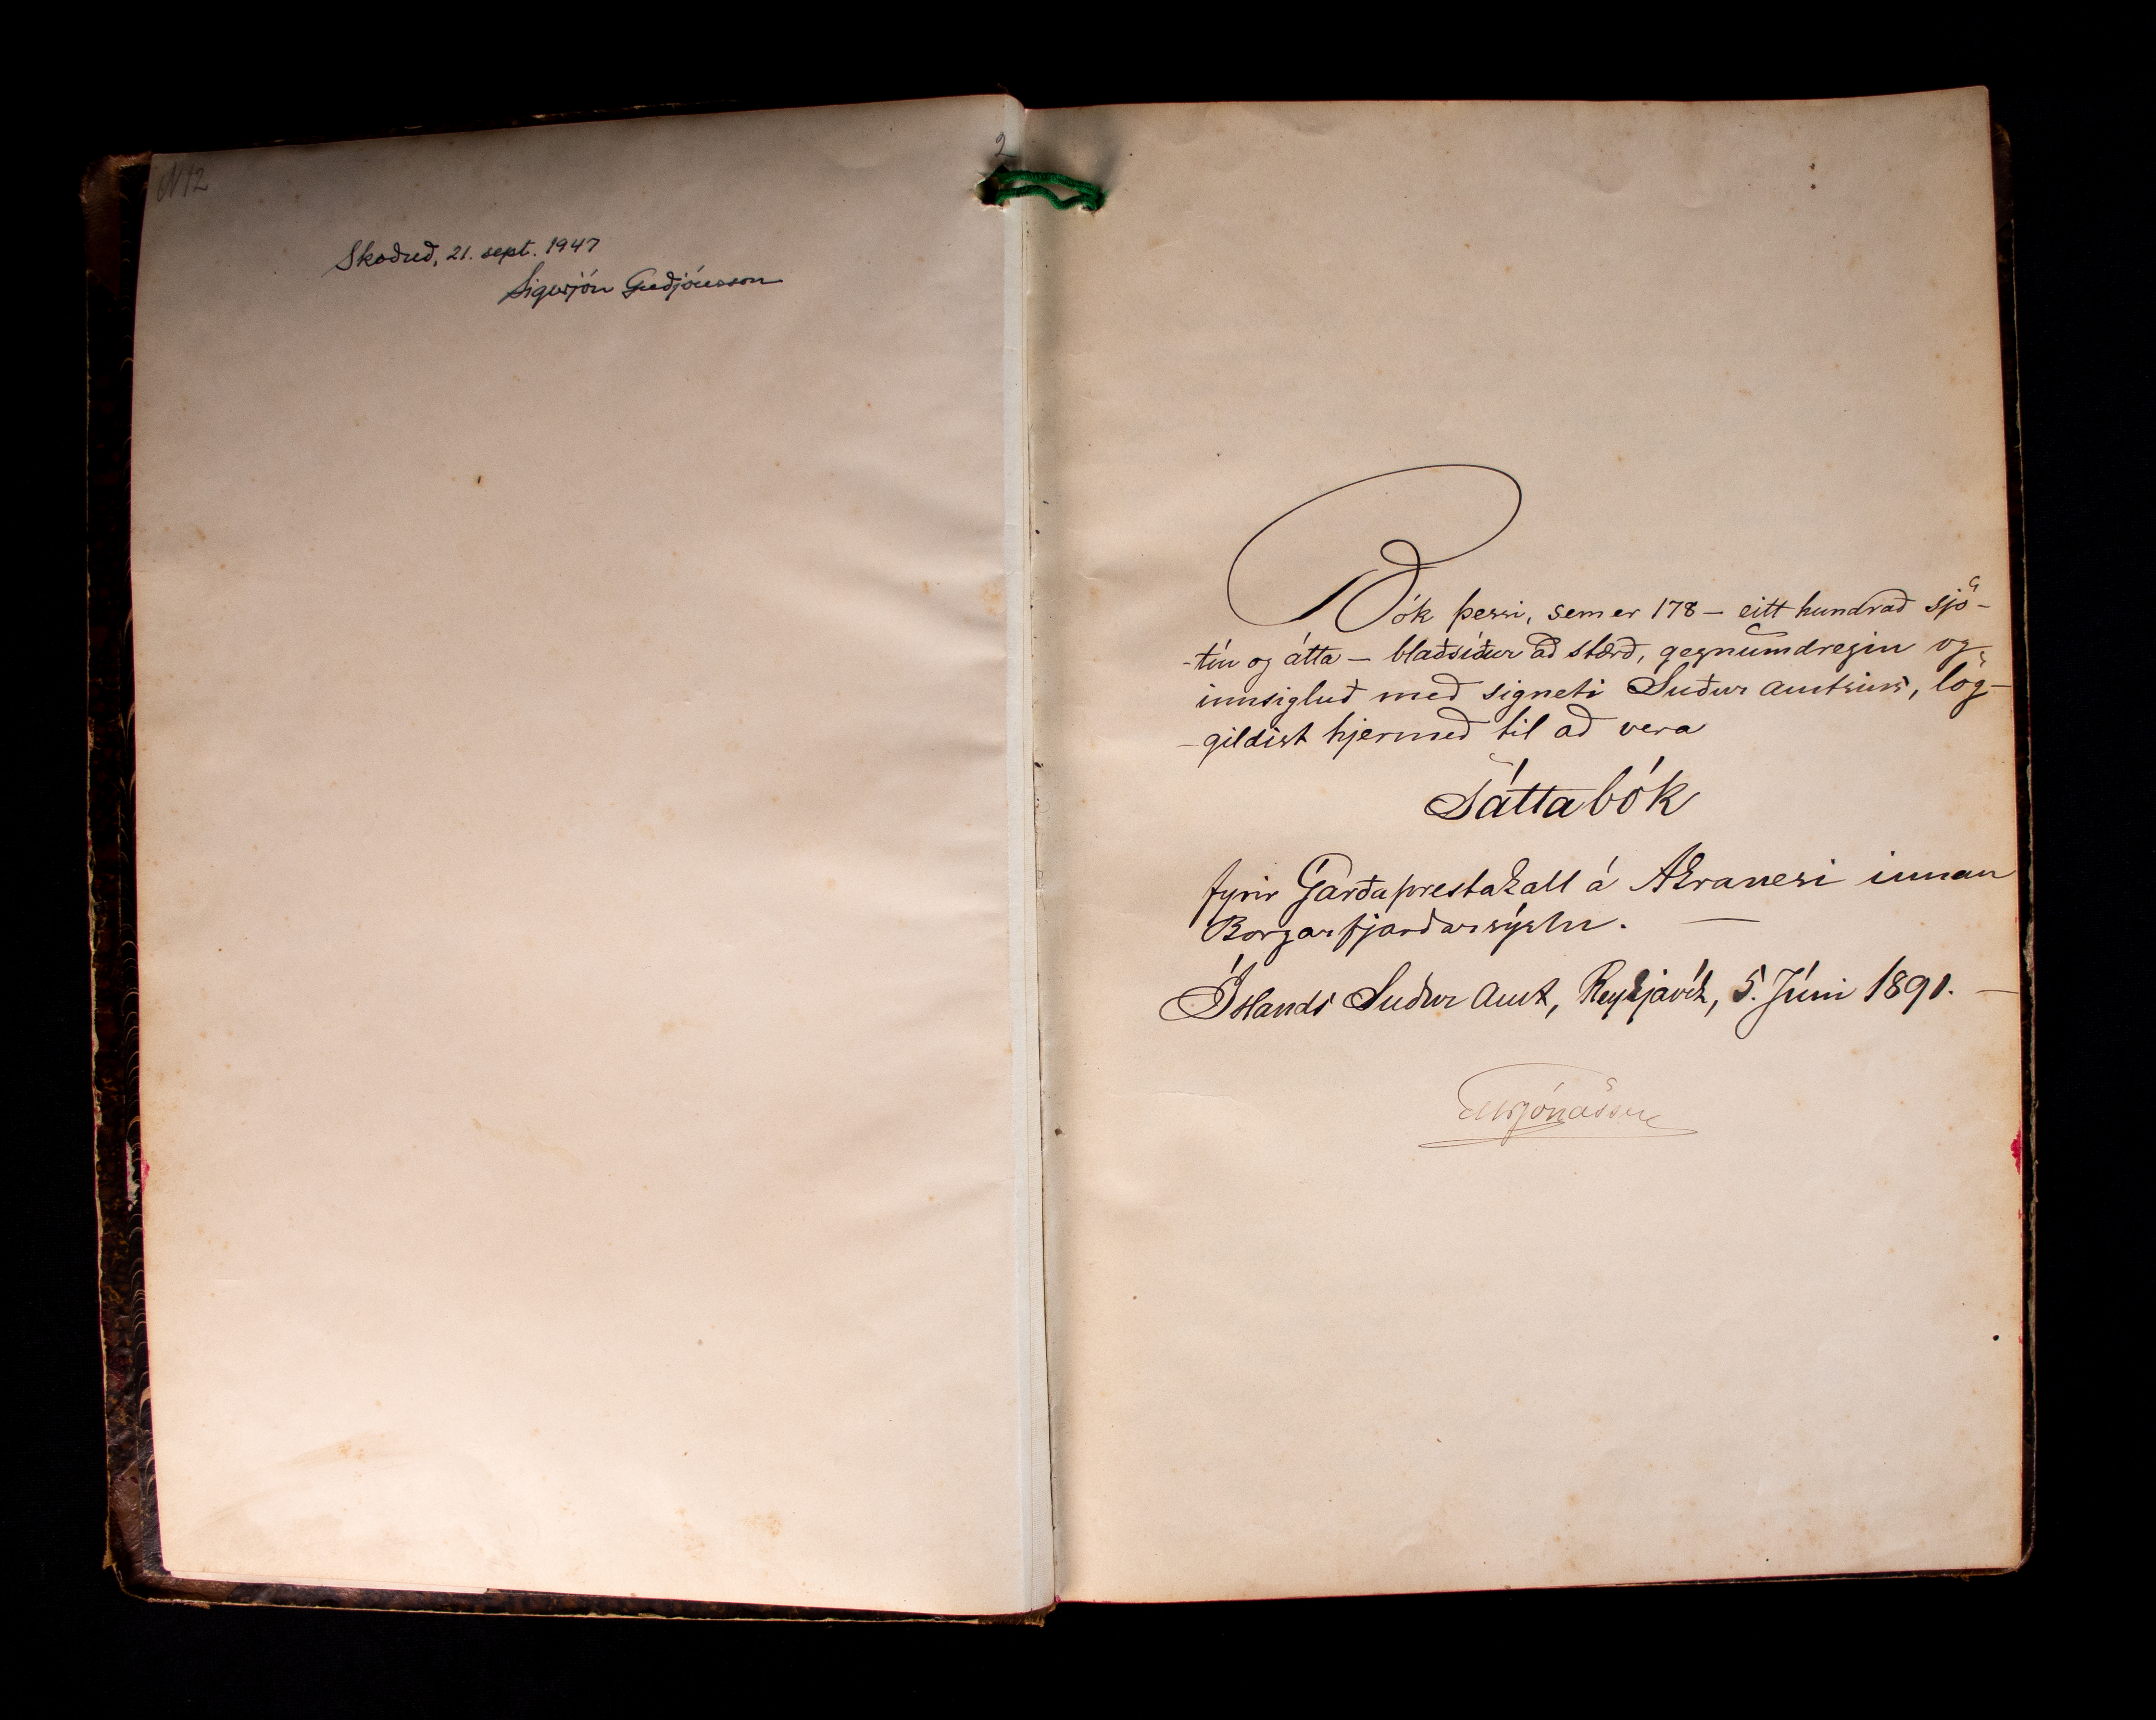 N12
2
Skoðuð, 21. sept. 1947
Sigurjón Guðjónsson
Bók þessi, sem er 178 — eitt hundrað sjö-
-tíu og átta — blaðsíður að stærð, gegnumdregin og
innsigluð með signeti Suður amtsins, lög-
-gildist hjermeð til að vera
Sáttabók
fyrir Garðaprestakall á Akranesi innan
Borgarfjarðarsýslu. —
Íslands Suður Amt, Reykjavík, 5. Júní 1891. —